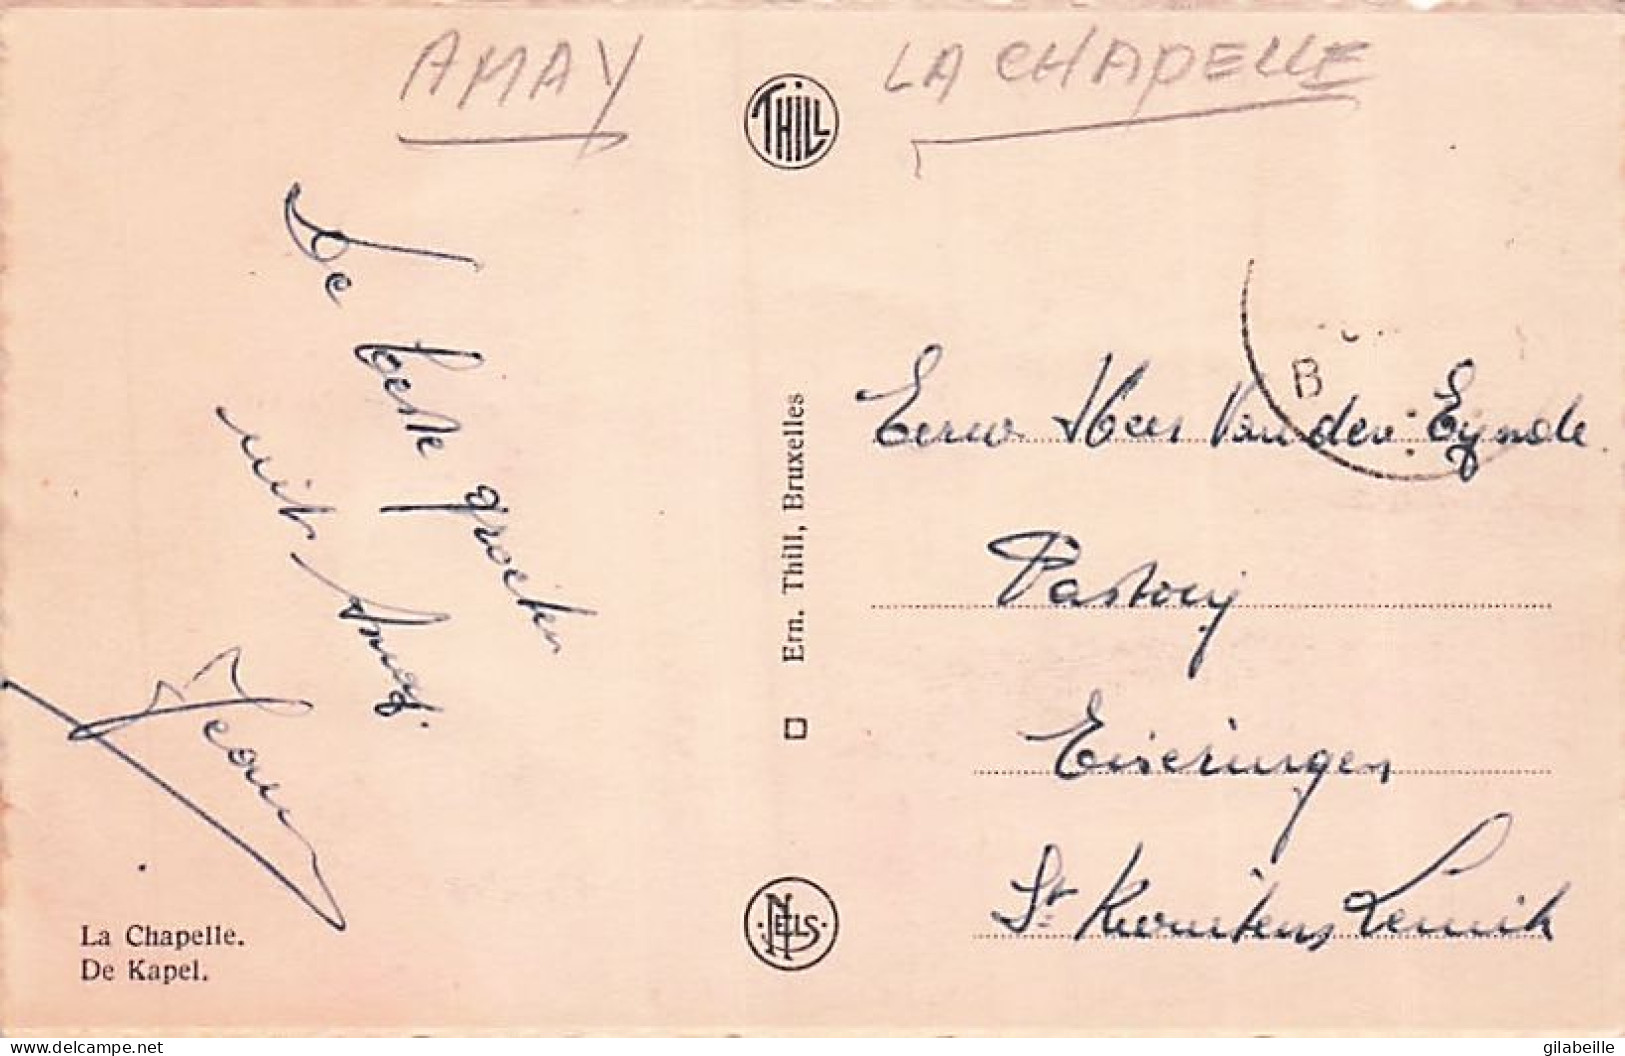 AMAY
LA CHAPELLE
THILL
De beste groeten
uit Amay.
Jean
Ern. Thill, Bruxelles
B
Eerw. Heer Van den Eynde
Pastorij
Eiseringen
St Kwintens Lennik
NELS
La Chapelle.
De Kapel.
Delcampe.net
gilabeille